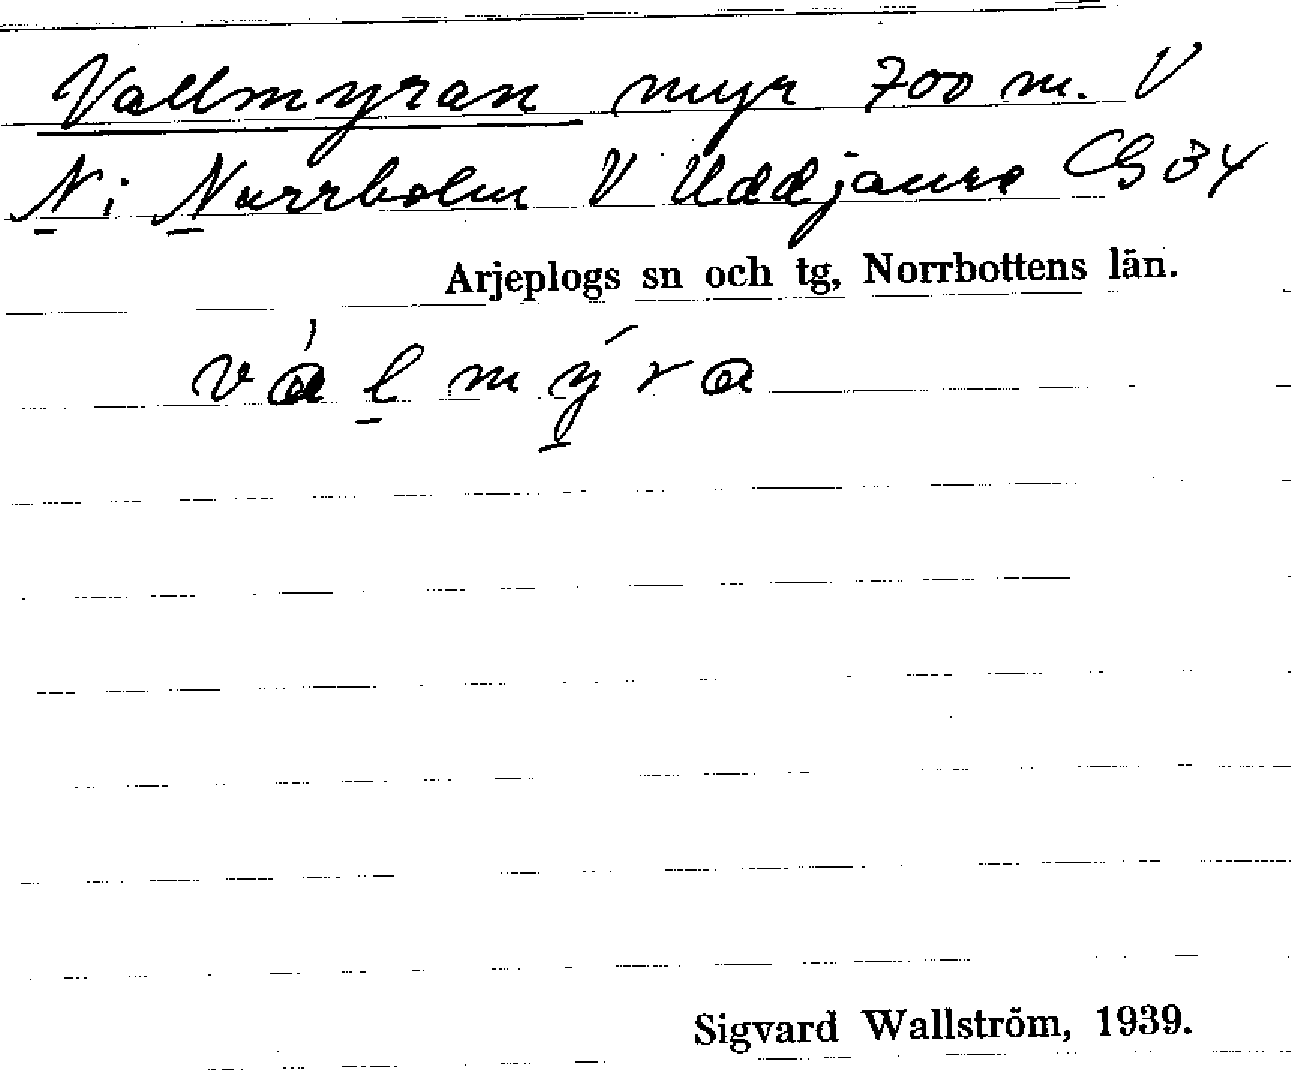 Vallmyran myr 700 m. V
N i Norrholm V Uddjaure CG 34
Arjeplogs sn och tg, Norrbottens län.
vál mýra
Sigvard Wallström, 1939.